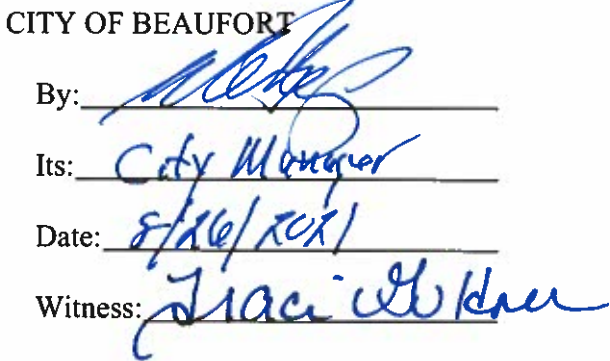 CITY OF BEAUFORT
By:
Its: City Manager
Date: 8/26/2021
Witness: Traci